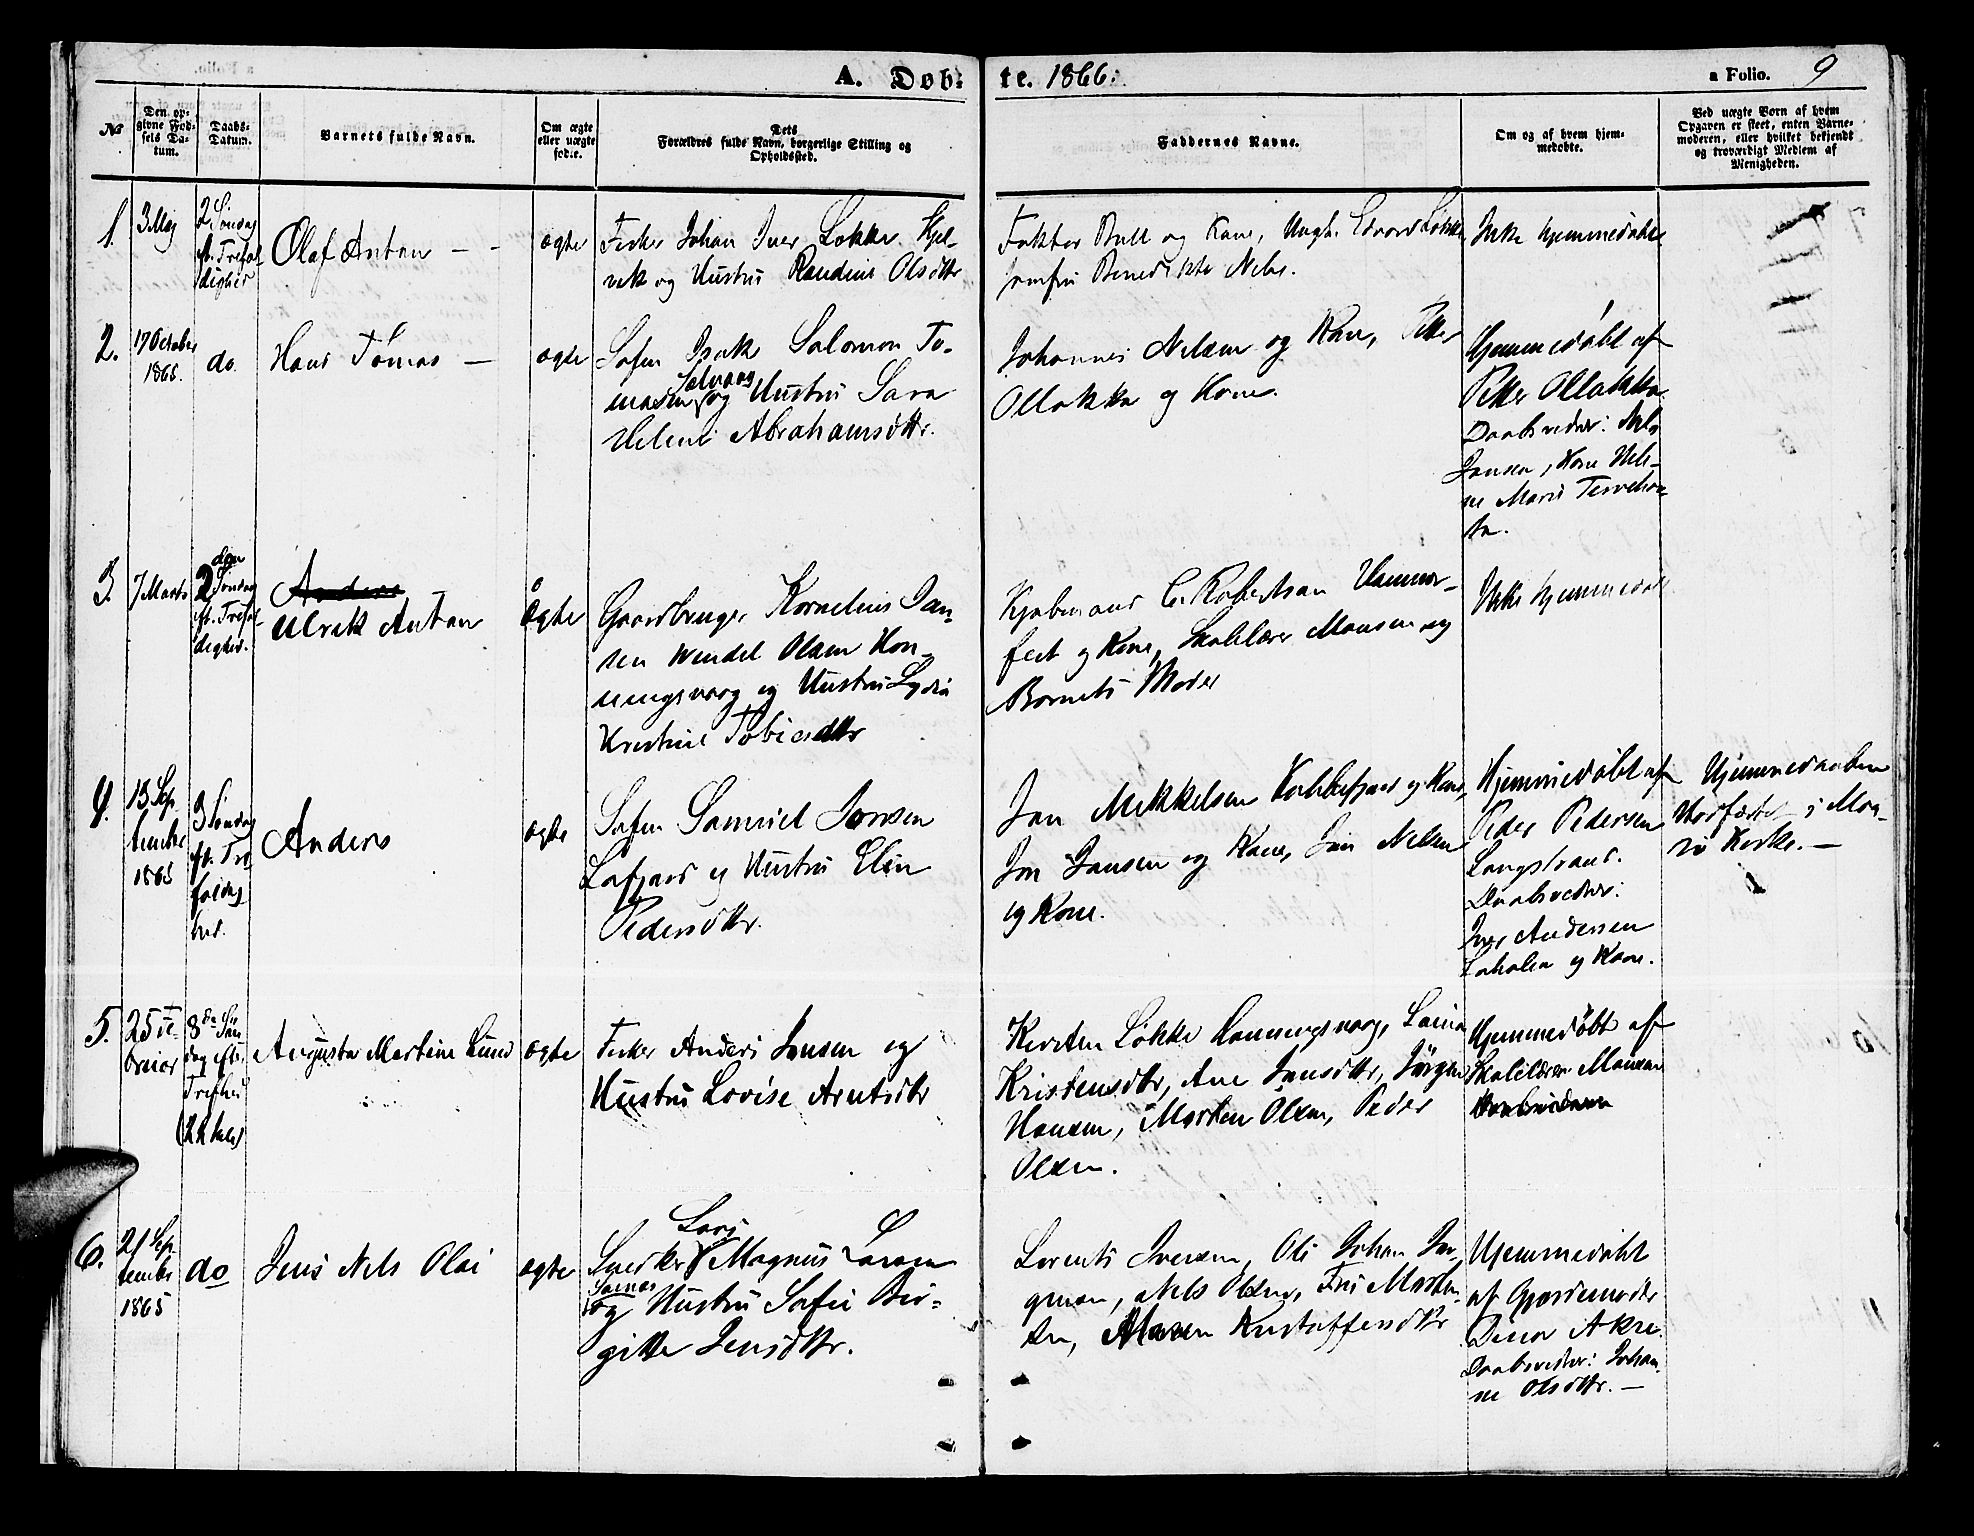 A. Døb-
te. 1866.
a Folio. 9
№
Den op-
givne Fød-
sels Da-
tum.
Daabs-
Datum.
Barnets fulde Navn.
Om ægte
eller uægte
fødte.
Dets
Forældres fulde Navn, borgerlige Stilling og
Opholdssted.
Faddernes Navne.
Om og af hvem hjem-
medøbte.
Ved uægte Børn af hvem
Opgaven er skeet, enten Barne-
moderen, eller hvilket bekjendt
og troværdigt Medlem af
Menigheden.
1.
3 Maj
2 Söndag
ft. Trefol-
dighed
Olaf Anton
ægte
Fisker Johan Iver Løkke Kjel-
vik og Hustru Randine Olsdttr
Faktor Bull og Kone, Ungk. Edvard Løkke
Jomfru Benedikte Nels.
Ikke hjemmedøbt
2.
17 October
1865.
do.
Hans Tømas
ægte
Søfin Isak Salomon To-
masen Solvaag og Hustru Sara
Helene Abrahamsdttr.
Johannes Nelsen og Kone, Peter
Ollakka og Kone.
Hjemmedøbt af
Peter Ollakka
Daabsvedner: Nels
Jansen, Kone Hele-
ne Marie
3.
7 Marts
2 den Söndag
ft. Trefol-
dighed.
Anders
Ulrik Anton
Ægte
Gaardbruger Kornelius Jan-
sen Wendel Olsen Hon-
ningsvaag og Hustru Lydia
Kristine Tobiasdttr
Kjøbmand C. Robertson Hammer-
fest og Kone, Skolelærer Monsen og
Barnets Moder
Ikke hjemmedøbt
4.
13 Sep-
tember
1865
3 Söndag
ft. Tre-
foldig-
hed.
Anders
ægte
Søfin Samuel Jonsen
Lafjord og Hustru Elin
Pedersdttr.
Jan Mikkelsen Kobbefjord og Kone,
Jon Jansen og Kone, Jon Nelsen
og Kone.
Hjemmedøbt af
Peder Pedersen
Langstrand.
Daabsvedner:
Iver Andersen
Laholm og Kone.
Hjemmedaaben
stadfæstet i Maa-
sø Kirke. —
5.
25 Fe-
bruar
8 de Sön-
dag efter
Trefhed
(22 Juli)
Augusta Martine Lund
ægte
Fisker Anders Jansen og
Hustru Lovise Arntsdtr
Kirsten Løkke Honningsvaag, Laina
Kristensdttr, Ane Jansdttr, Jørgen
Hansen, Morten Olsen, Peder
Olsen.
Hjemmedøbt af
Skolelærer Monsen
6.
21 Sep-
tember
1865
do
Jens Nels Olai
ægte
Snedker Lars Magnus Larsen
Sarnes
og Hustru Sofie Bir-
gitte Jensdttr.
Lorents Iversen, Ole Johan Jør-
gensen, Nels Olsen, Fru Morten-
sen, Maren Kristoffersdttr
Hjemmedøbt
af Gjordemoder
Dina Akre.
Daabsvedner: Johan-
ne Olsdttr. —